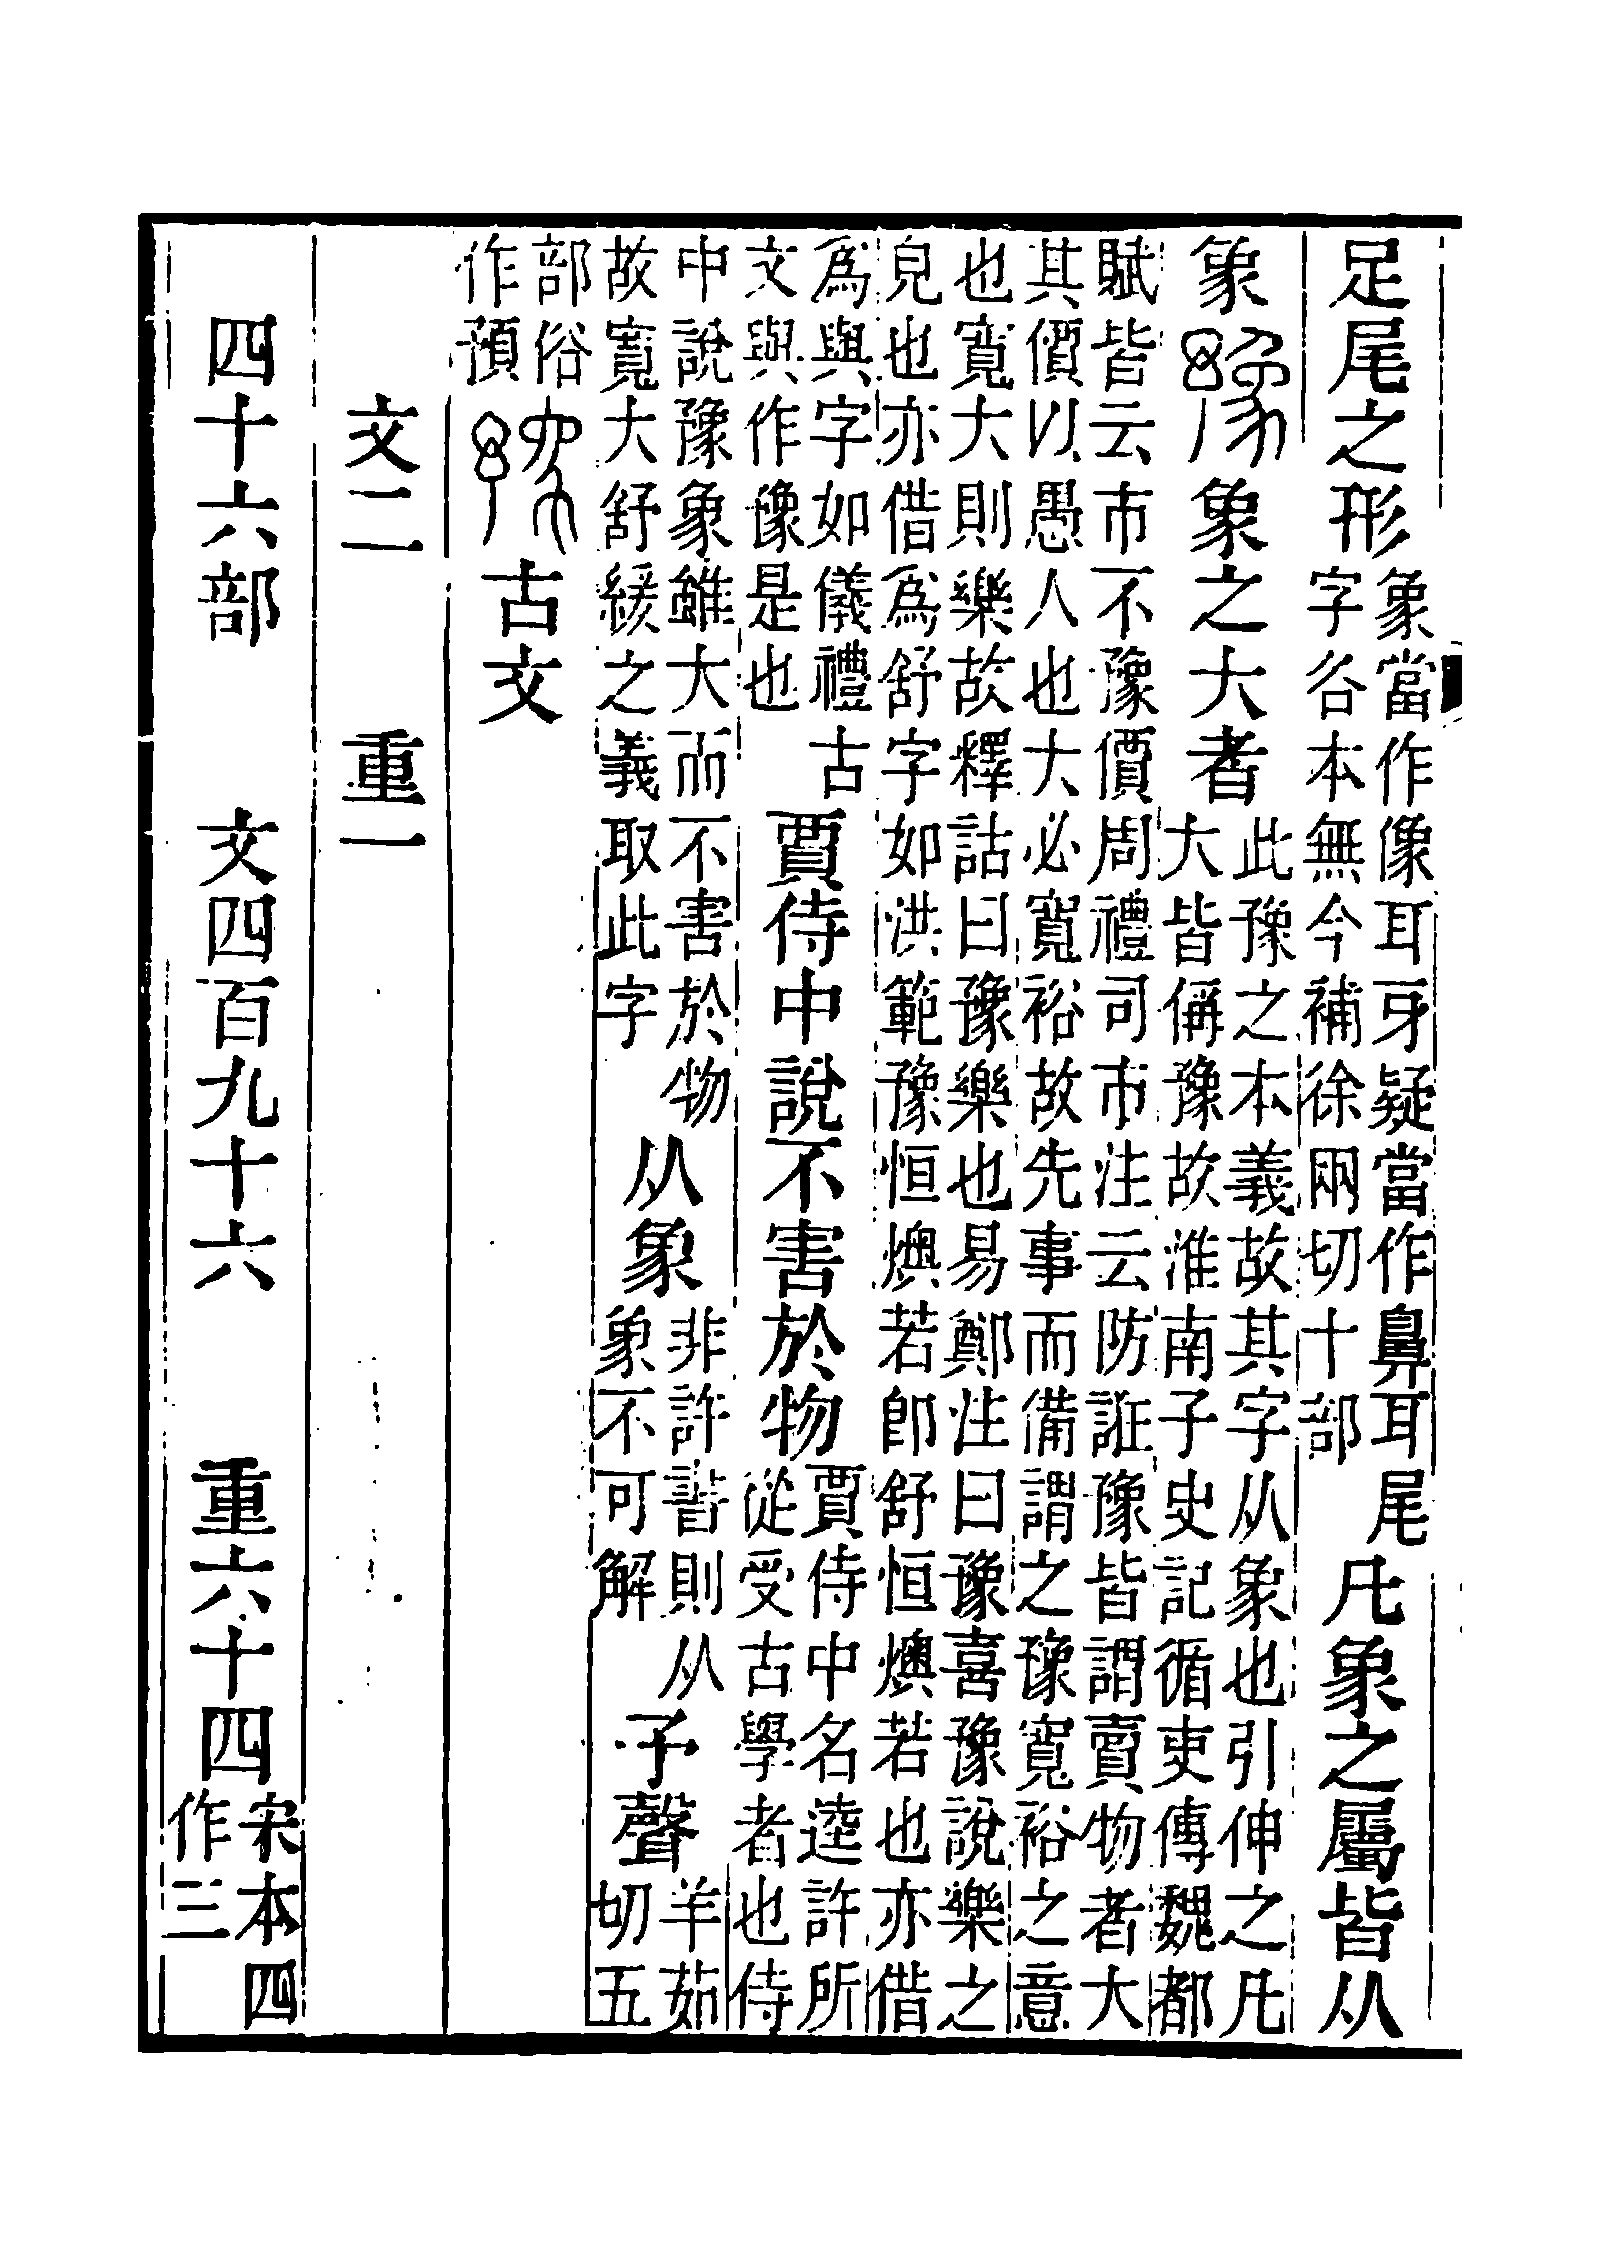 足尾之形象當作像耳牙疑當作鼻耳尾字谷本無今補徐兩切十部凡象之屬皆从
象豫象之大者此豫之本義故其字从象也引伸之凡大皆偁豫故淮南子史記循吏傳魏都
賦皆云市不豫價周禮司市注云防誑豫皆謂賣物者大其價以愚人也大必寬裕故先事而備謂之豫寬裕之意
也寬大則樂故釋詁曰豫樂也易鄭注曰豫喜豫說樂之皃也亦借爲舒字如洪範豫恒燠若卽舒恒燠若也亦借
爲與字如儀禮古文與作豫是也賈侍中說不害於物賈侍中名逵許所從受古學者也侍
中說豫象雖大而不害於物故寬大舒緩之義取此字从象非許書則从象不可解予聲羊茹切五
部俗作預古文
文二　重一
四十六部　文四百九十六　重六十四宋本四作三